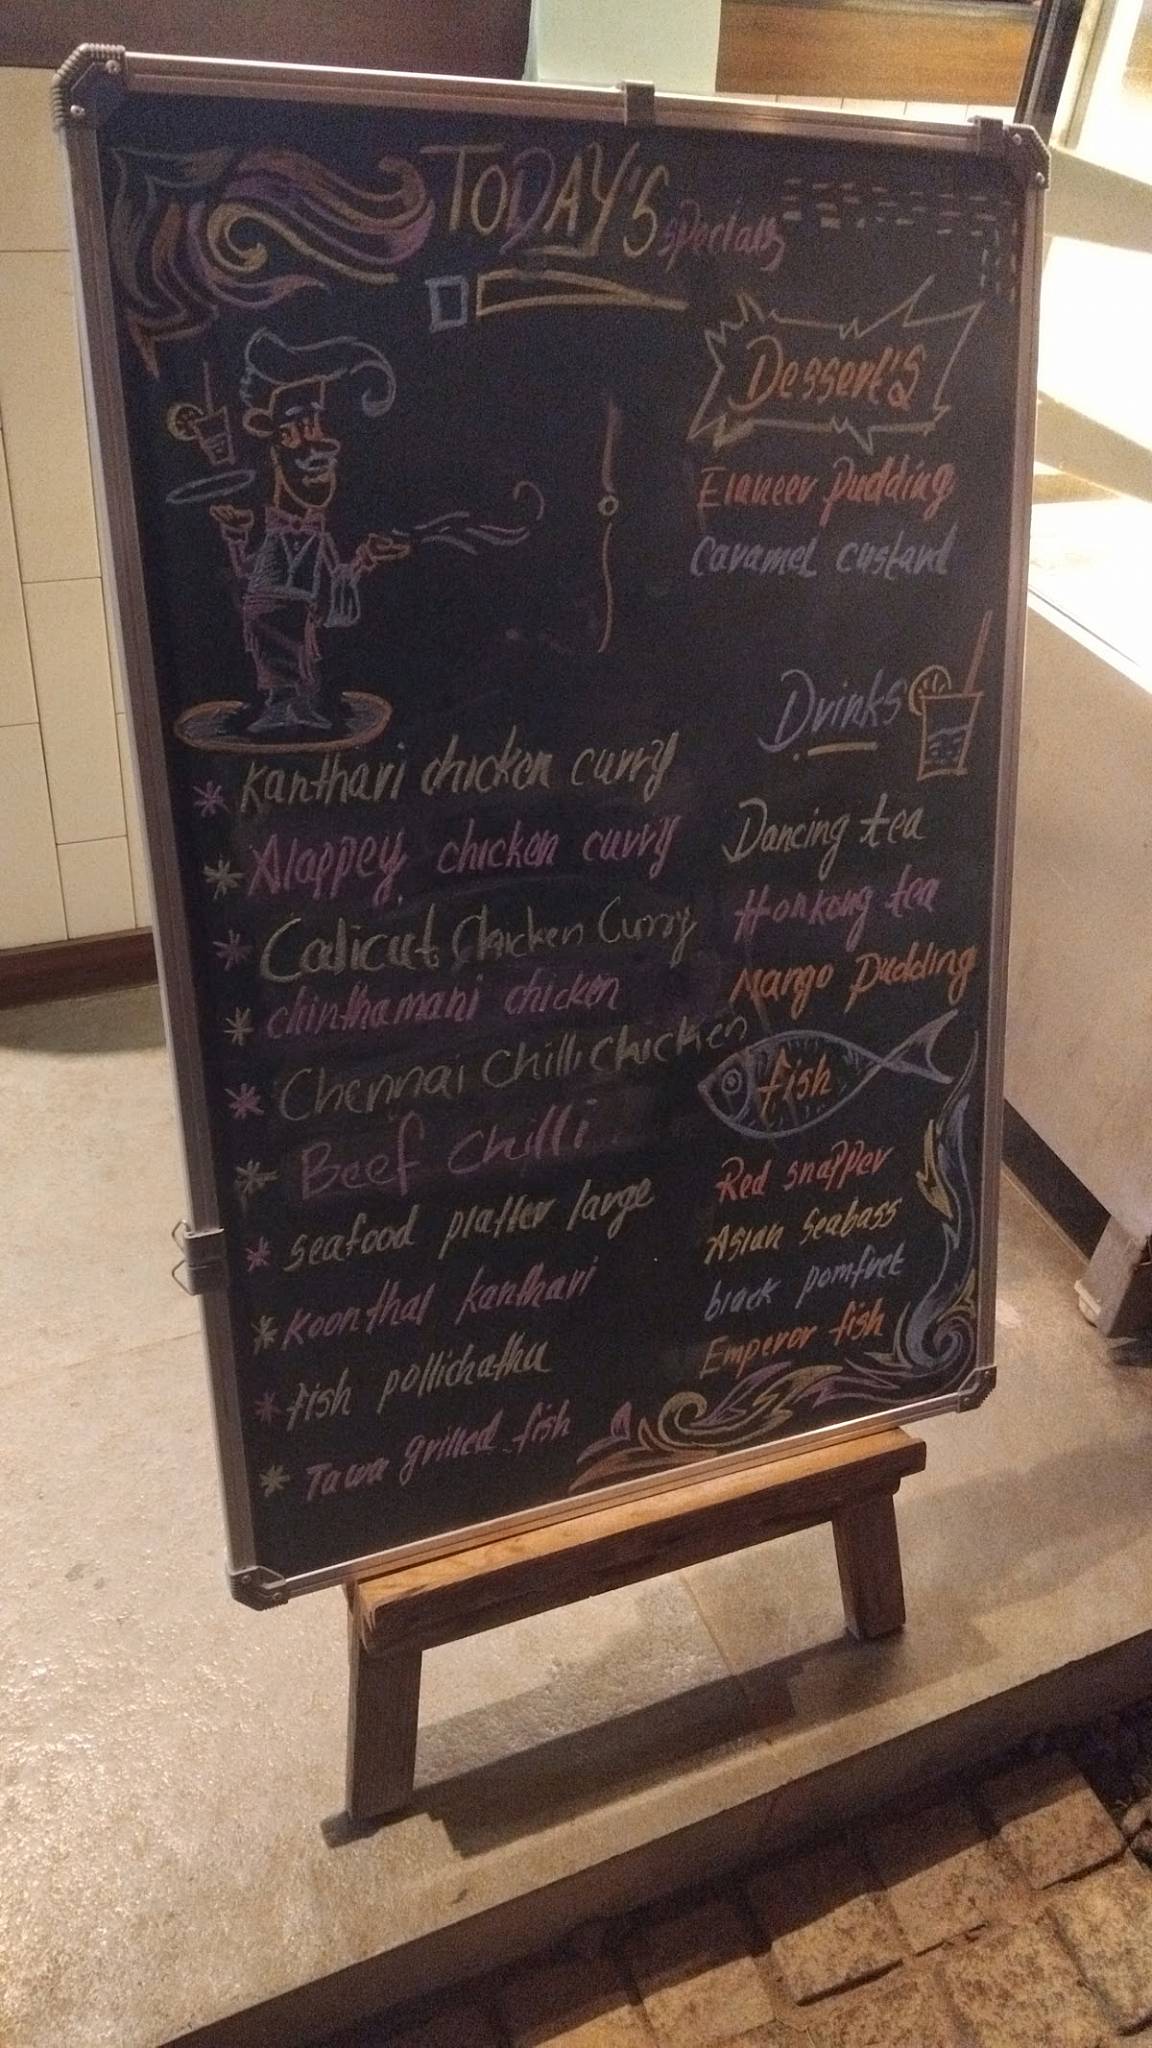 TODAY'S specials
* Kanthari chicken curry
* Alappey chicken curry
* Calicut Chicken Curry
* chinthamani chicken
* Chennai Chilli Chicken
* Beef Chilli
* seafood platter large
* Koonthal kanthari
* fish pollichathu
* Tawa grilled fish
Dessert'S
Elaneer pudding
Caramel custard
Drinks
Dancing tea
Honkong tea
Mango pudding
fish
Red snapper
Asian Seabass
black pomfret
Emperor fish